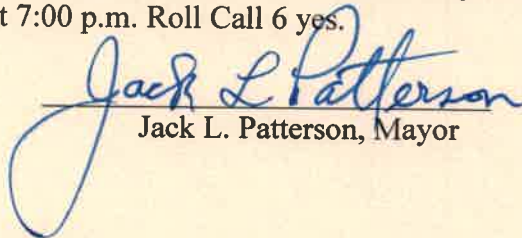 t 7:00 p.m. Roll Call 6 yes.
Jack L Patterson
Jack L. Patterson, Mayor